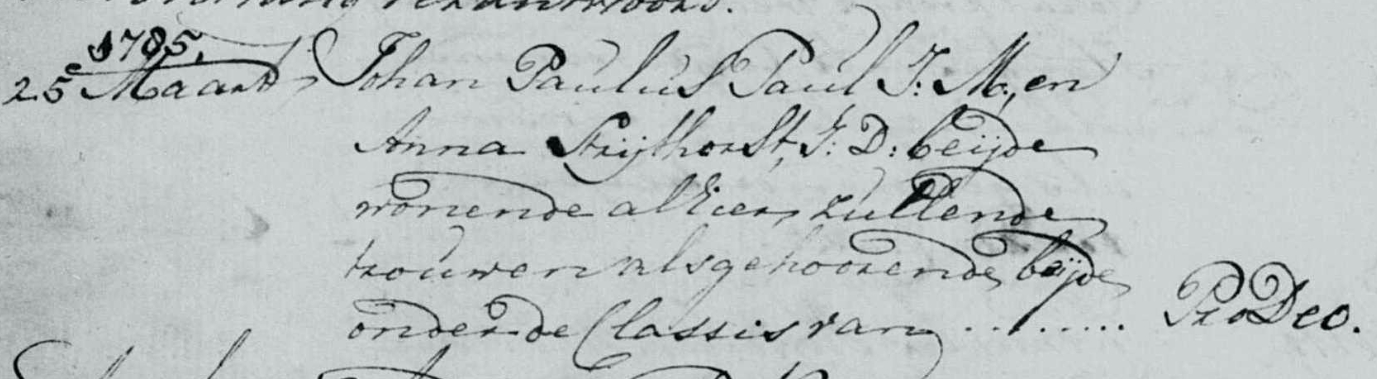 1785,
25e Maart, Johan Paulus Paul J: M:, en
Anna Strijthorst, J: D: beijde
wonende alhier, zullende
trouwen als gehoorende, beijde
onder de Classis van ......... Pro Deo.